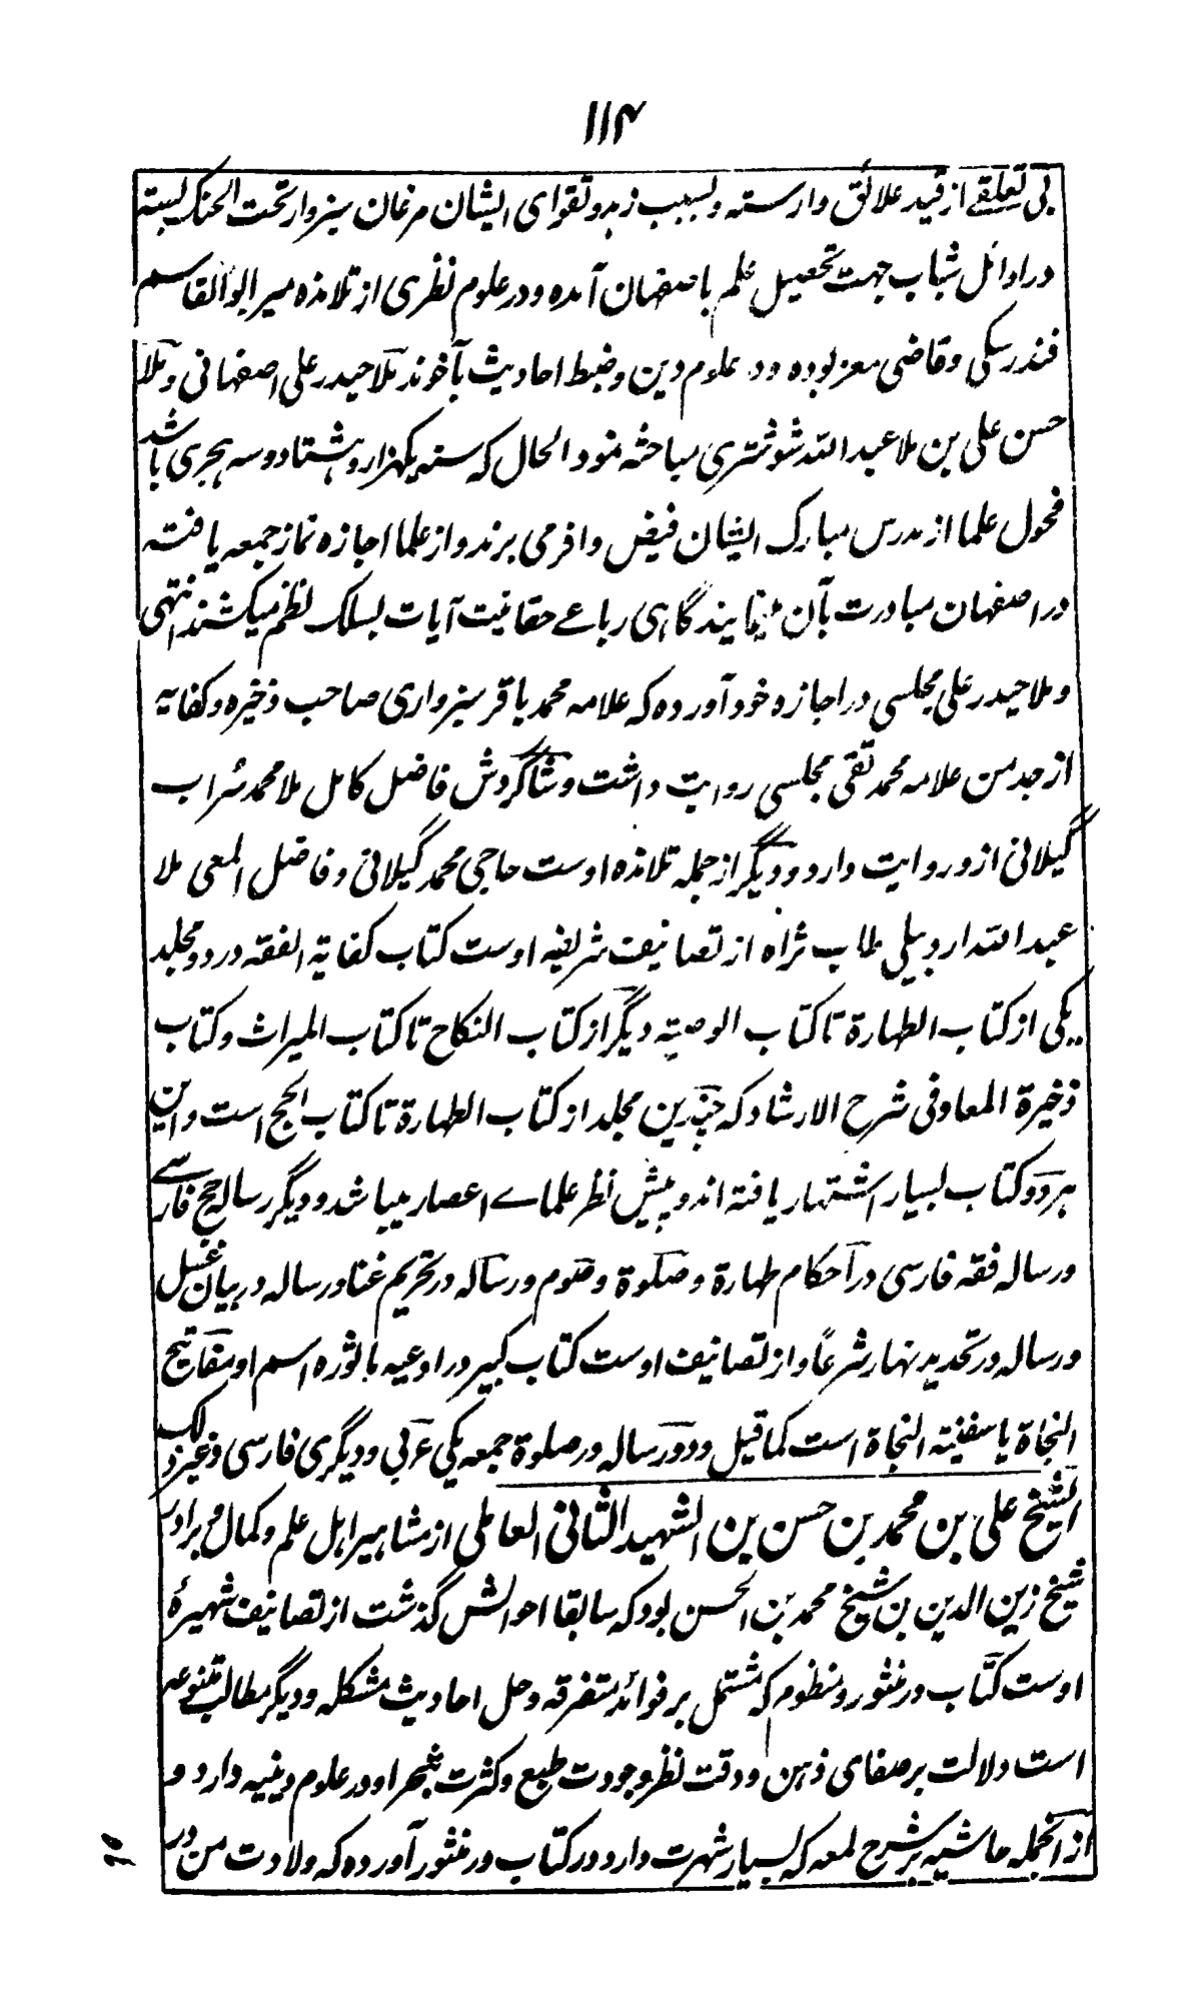 ۱۱۴
بی تعلقے از قید علائق وارسته و بسبب زهد و تقوای ایشان مرغان سبزوار تحت الحنک بسته
در اوائل شباب جهت تحصیل علم باصفهان آمده و در علوم نظری از تلامذه میر ابوالقاسم
فندرسکی و قاضی معز بوده و در علوم دین و ضبط احادیث بآخوند ملا حیدر علی اصفهانی و ملا
حسن علی بن ملا عبد الله شوشتری مباحثه نمود الحال که سنه یکهزار و هشتاد و سه هجری باشد
فحول علما از مدرس مبارک ایشان فیض وافر می برند و از علما اجازه نماز جمعه یافته
در اصفهان مبادرت بآن مینمایند گاهی رباعے حقانیت آیات بسلک نظم میکشند انتهی
و ملا حیدر علی مجلسی در اجازه خود آورده که علامه محمد باقر سبزواری صاحب ذخیره و کفایه
از جد من علامه محمد تقی مجلسی روایت داشت و شاگردش فاضل کامل ملا محمد سُراب
گیلانی ازو روایت دارد و دیگر از جمله تلامذه اوست حاجی محمد گیلانی و فاضل المعی ملا
عبد الله اردبیلی طاب ثراه از تصانیف شریفه اوست کتاب کفایة الفقه در دو مجلد
یکی از کتاب الطهارة تا کتاب الوصیته دیگر از کتاب النکاح تا کتاب المیراث و کتاب
ذخیرة المعاد فی شرح الارشاد که چندین مجلد از کتاب الطهارة تا کتاب الحج است و این
هر دو کتاب بسیار اشتهار یافته اند و پیش نظر علماے اعصار میباشد و دیگر رساله حج فارسے
و رساله فقه فارسی در احکام طهارة و صلوة و صوم و رساله در تحریم غنا و رساله در بیان غسل
و رساله در تحدید نهار شرعًا و از تصانیف اوست کتاب کبیر در ادعیه ماثوره اسم او مفاتیح
النجاة یا سفینة النجاة است کما قیل و دو رساله در صلوة جمعه یکی عربی و دیگری فارسی و غیر ذلک
الشیخ علی بن محمد بن حسن بن الشهید الثانی العاملی از مشاهیر اهل علم و کمال و برادر
شیخ زین الدین بن شیخ محمد بن الحسن بود که سابقا احوالش گذشت از تصانیف شهیرۀ
اوست کتاب در منثور و منظوم که مشتمل بر فوائد متفرقه و حل احادیث مشکله و دیگر مطالب متنوعه
است دلالت بر صفای ذهن و دقت نظر و جودت طبع و کثرت تبحر او در علوم دینیه دارد و
از آنجمله حاشیه بر شرح لمعه که بسیار شهرت دارد در کتاب در منثور آورده که ولادت من در